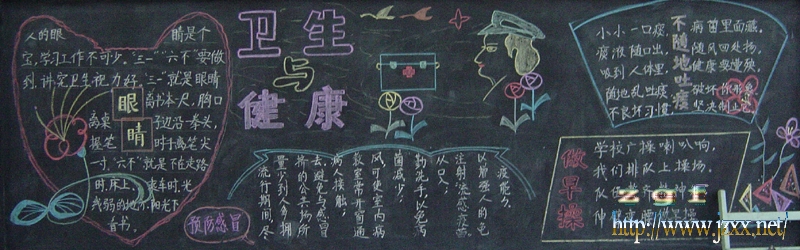 人的眼 睛是个
宝,学习工作不可少,"三一""六不"要做
到,讲究卫生视力好,"三一"就是眼睛
离书本一尺,胸口
离桌子边沿一拳头,
握笔时手离笔尖
一寸,"六不"就是不在走路
时、床上、乘车时、光
线弱的地方、阳光下
看书。
眼
睛
预防感冒
卫生
与
健康
疫能力。
以增强人的免
注射流感疫苗
从口入;
勤洗手以免病
菌减少;
风可使室内病
教室常开窗通
病人接触;
去,避免与感冒
挤的公共场所
量少到人多拥
流行期间,尽
不随地吐痰
小小一口痰,病菌里面藏。
痰液随口出,随风四处扬。
吸到人体里,健康要遭殃。
随地乱吐痰,破坏你形象
不良坏习惯,坚决制止它。
做早操
学校广播喇叭响,
我们排队上操场。
zgr
http://www.jzxx.net/